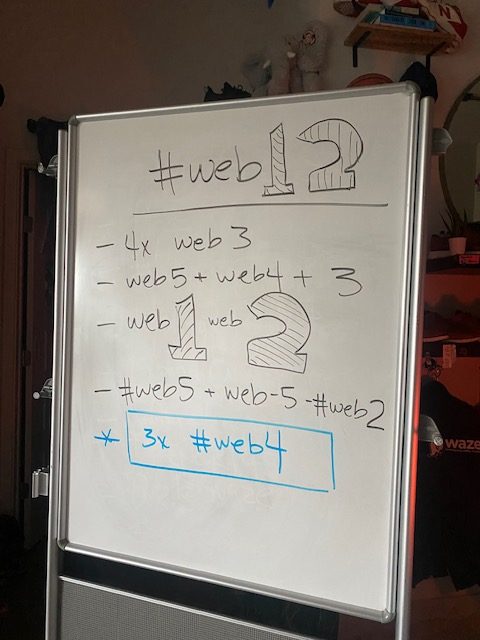 #web12
- 4x web3
- web5 + web4 + 3
- web1 web2
- #web5 + web-5 -#web2
* 3x #web4
waze